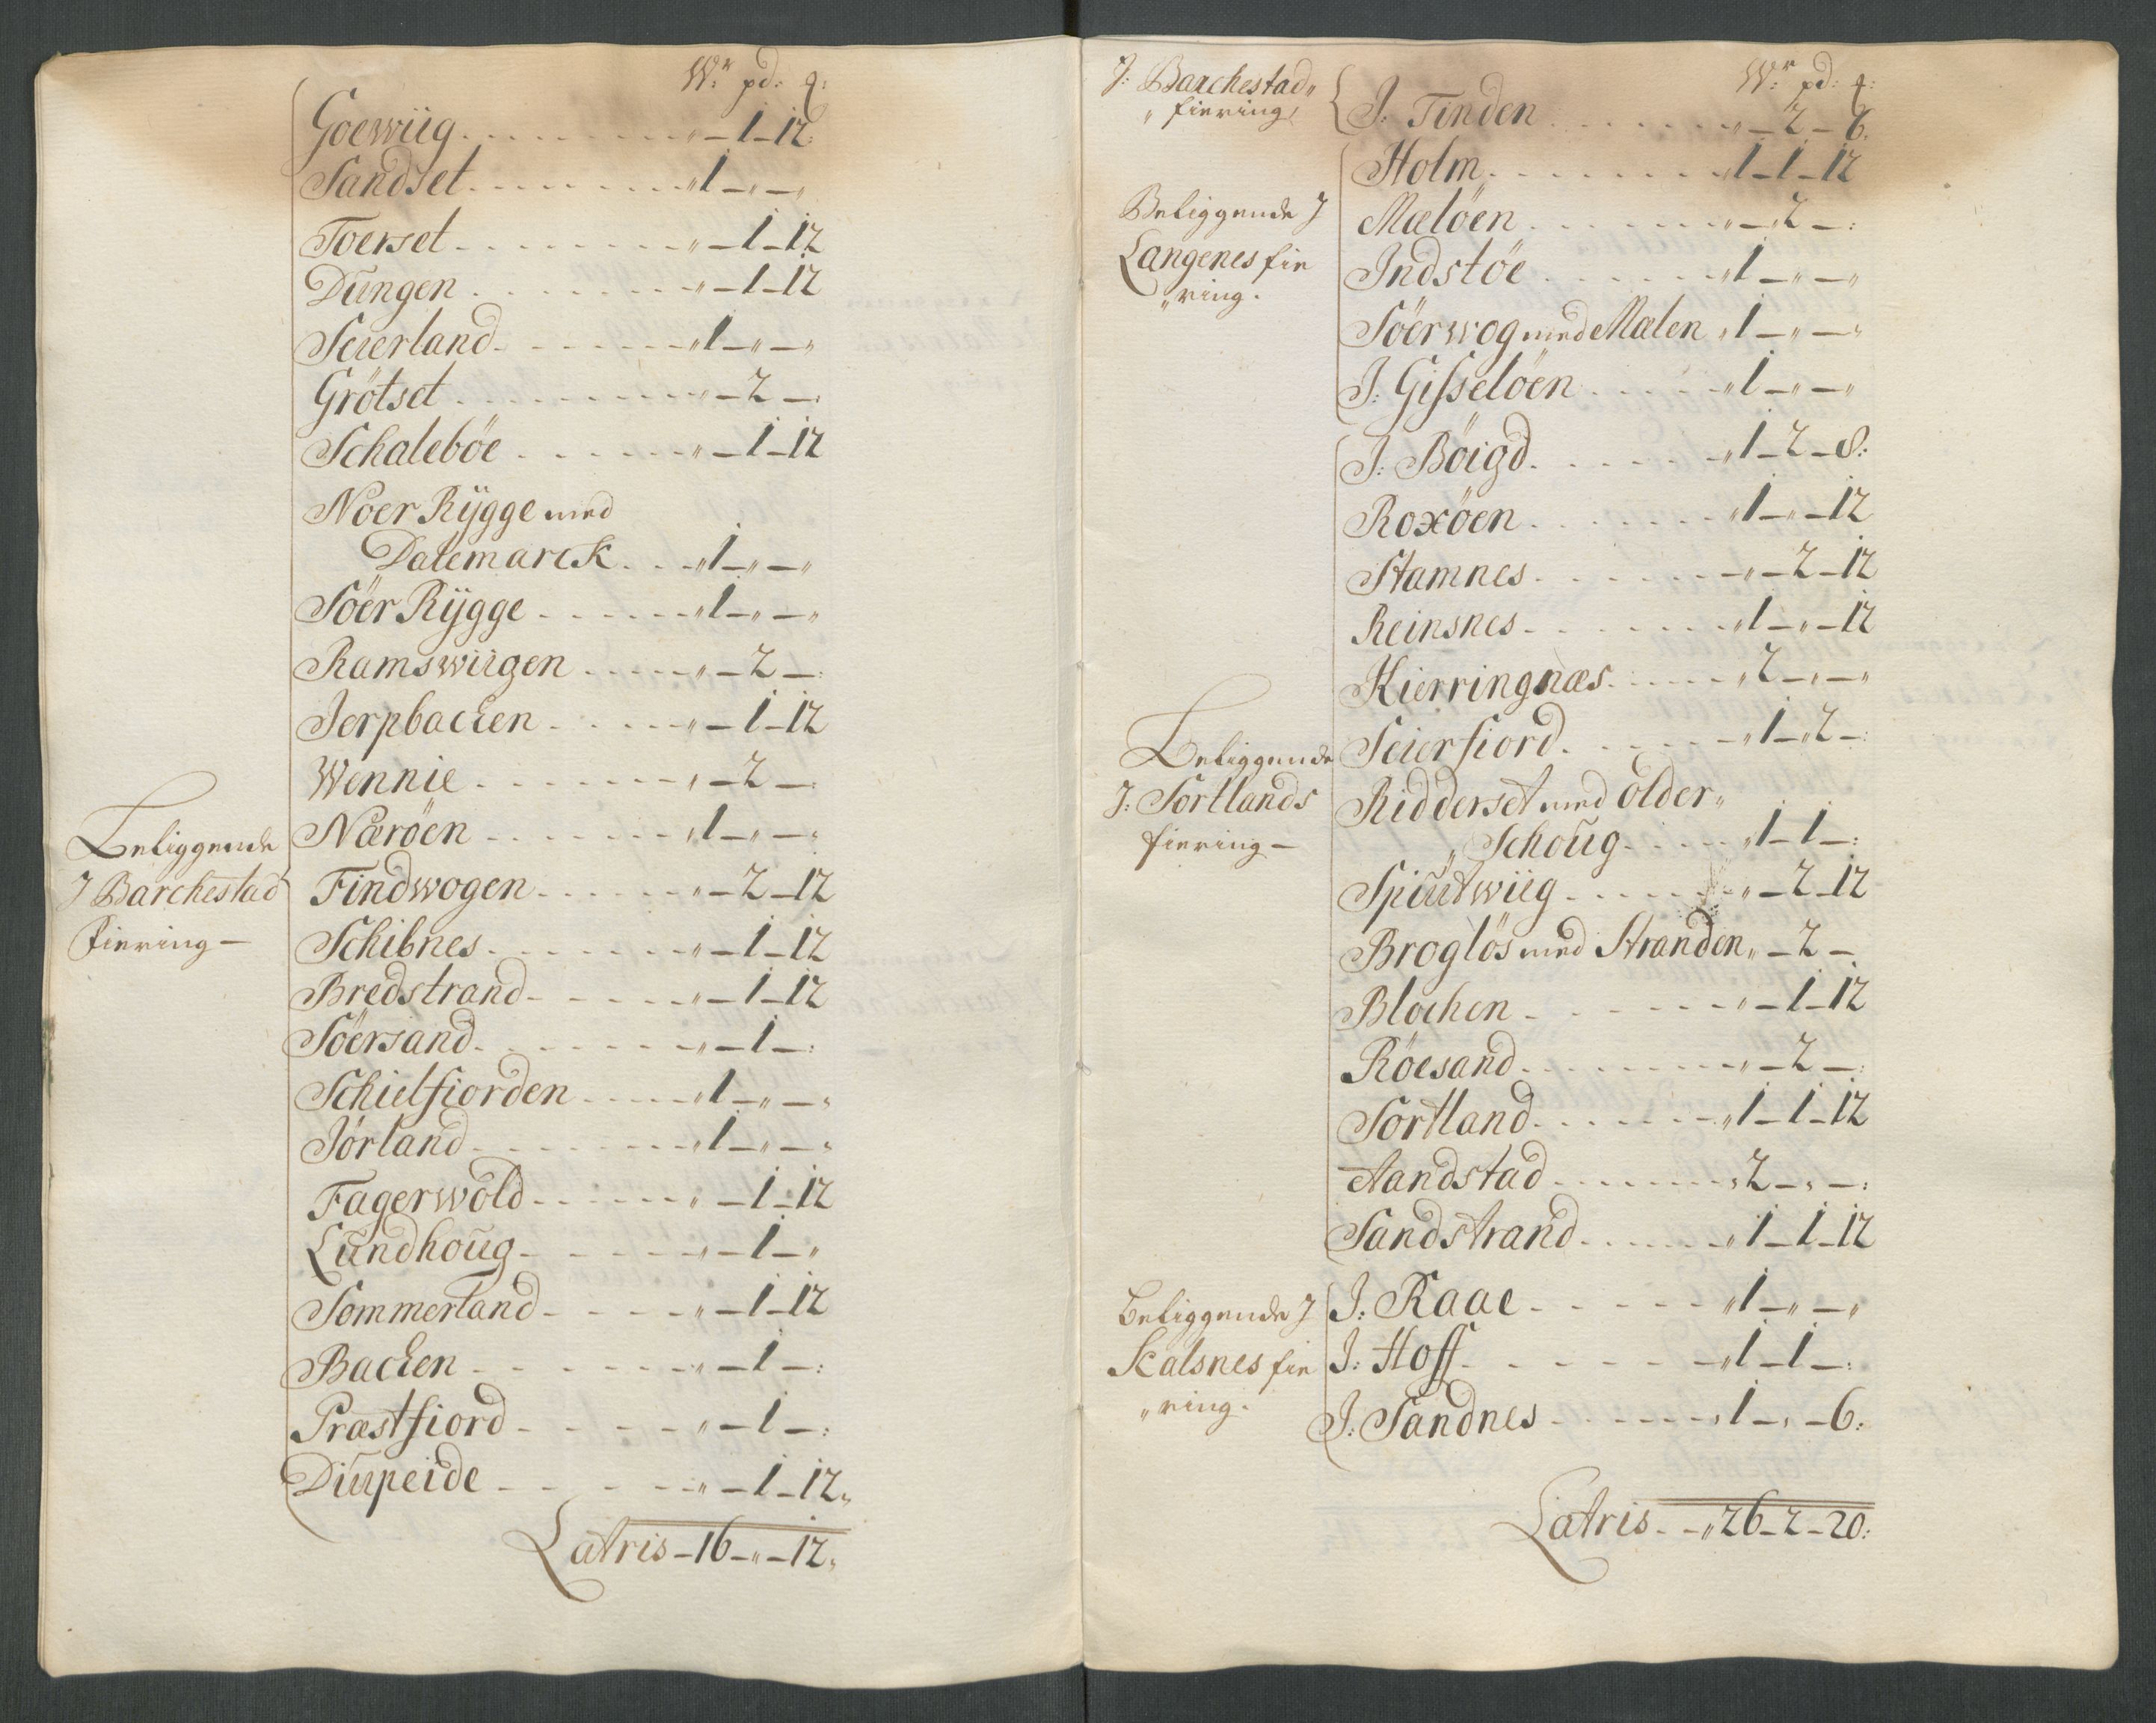 Wr: pd: ꝗ:
Goewiig . . . . . . . . „ – 1 – 12:
Sandset . . . . . . . . „ 1 – „ – „
Toerset . . . . . . . . „ – 1 – 12
Dŭngen . . . . . . . . „ – 1 – 12
Seierland . . . . . . . „ 1 – „ – „
Grötset . . . . . . . . „ – 2 – :
Schaleböe . . . . . . „ – 1 – 12
Noer Rÿgge med
Dalemarck . . . „ 1 – „ – „
Söer Rÿgge . . . . . . „ 1 – „ – „
Ramswiigen . . . . . „ – 2 – :
Jerpbacken . . . . . „ – 1 – 12
Wennie . . . . . . . . „ – 2 – :
Næröen . . . . . . . „ 1 – „ – „
Beliggende
J Barchestad
fiering –
Findwogen . . . . . . „ – 2 – 12
Schibnes . . . . . . . „ – 1 – 12
Bredstrand . . . . . „ – 1 – 12
Söersand . . . . . . . „ – 1 – :
Schielfiorden . . . . „ 1 – „ – „
Jörland . . . . . . . „ 1 – „ – „
Fagerwold . . . . . . „ – 1 – 12
Lŭndhoŭg . . . . . . „ – 1 – „
Sommerland . . . . . „ – 1 – 12
Backen . . . . . . . „ – 1 – :
Præstfiord . . . . . „ – 1 – :
Diŭpeide . . . . . . „ – 1 – 12„
Latris – 16 – „ – 12„
Wr: pd: ꝗ:
J: Barchestad„
„ fiering
J: Tinden . . . . . . . „ – 2 – 6.
Holm . . . . . . . . „ 1 – 1 – 12
Beliggende J
Langenes fie
„ring.
Maløen . . . . . . . „ – 2 – :
Indstöe . . . . . . . „ 1 – „ – „
Söerwog med Malen „ 1 – „ – „
J: Gisselöen . . . . . „ 1 – „ – „
J: Böigd . . . . . . „ 1 – 2 – 8:
Roxöen . . . . . . . „ 1 – „ – 12
Stamnes . . . . . . . „ – 2 – 12
Reinsnes . . . . . . . „ 1 – „ – 12
Kierringnæs . . . . . „ 2 – „ – „
Beliggende
J: Sortlands
fiering –
Seierfiord . . . . . . „ 1 – 2 – :
Ridderset med Older„
„ Schoŭg . . . . . „ 1 – 1 – :
Spiŭtwiig . . . . . . „ – 2 – 12
Broglös med Stranden „ – 2 –
Blochen . . . . . . . „ – 1 – 12
Röesand . . . . . . . „ – 2 – :
Sortland . . . . . . „ 1 – 1 – 12
Aandstad . . . . . . . „ 2 – „ – :
Sandstrand . . . . . „ 1 – 1 – 12
Beliggende J
Skalsnes fie
„ring.
J: Raae . . . . . . „ 1 – „ – „
J: Hoff . . . . . . . „ 1 – 1 – :
J: Sandnes . . . . . . „ 1 – „ – 6:
Latris – – „ 26 – 2 – 20: